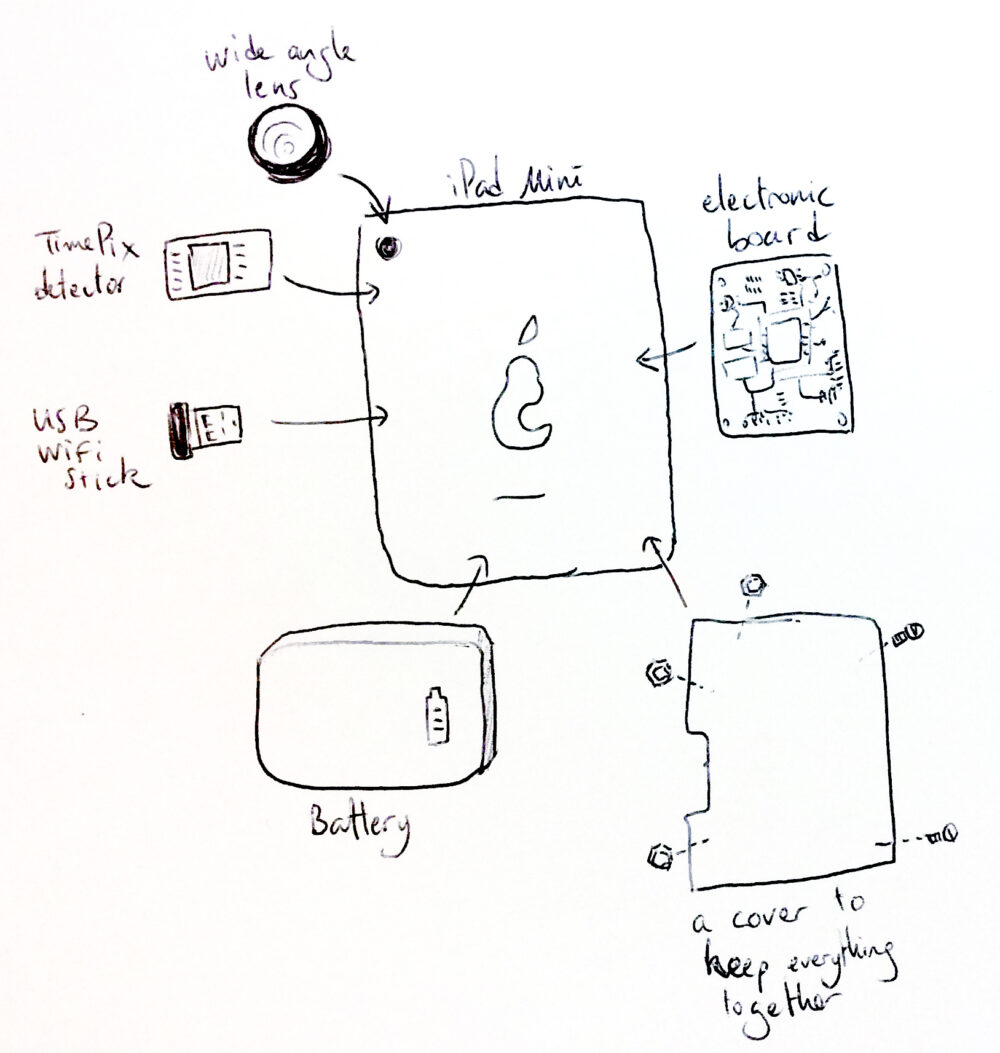 wide angle
lens
iPad Mini
electronic
board
TimePix
detector
USB
WiFi
stick
Battery
a cover to
keep everything
together